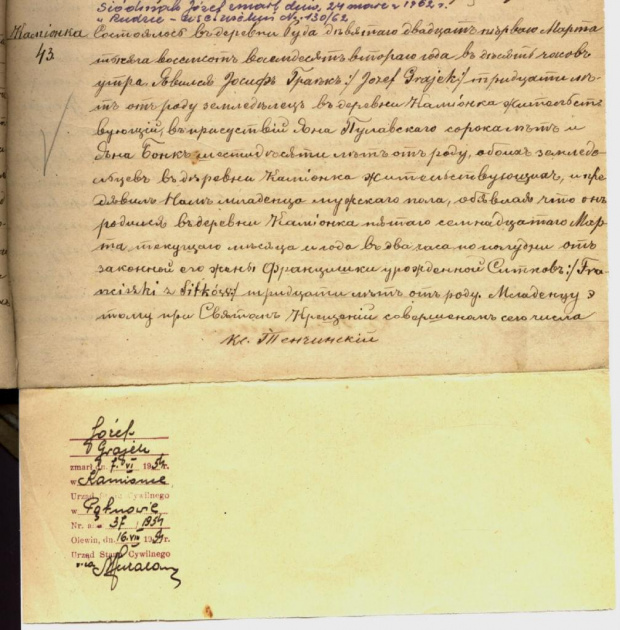 Siódmiak Józef zmarł dnia 24 marca 1962 r.
w Rudzie Nr. 130/62
Каміонка
43.
Состоялось въ деревни Руда дѣвятаго двадцать перваго Марта
тысяча восемсотъ восемдесятъ втораго года въ десять часовъ
утра. Явился Іосифъ Граекъ :/ Józef Grajek :/ тридцати лѣ-
тъ отъ роду земледѣлецъ въ деревни Каміонка жительств-
вующій, въ присуствіи Яна Пулавскаго сорока лѣтъ и
Яна Бонкъ шестидесяти лѣтъ отъ роду, обоихъ земледѣ-
льцевъ въ деревни Каміонка жительствующихъ, и пре-
дъявилъ Намъ младенца мужскаго пола, объявляя что онъ
родился въ деревни Каміонка пятаго семнадцатаго Мар-
та текущаго мѣсяца и года въ два часа по полудни отъ
законной его жены Францишки урожденной Ситковъ :/ Fra-
nciszki z Sitków :/ тридцати лѣтъ отъ роду. Младенцу э-
тому при Святомъ Крещеніи совершенномъ сего числа
Кс. Тенчинскій
Józef
Grajek
zmarł dn. 7. VI 1954 r.
w Kamionce
Urząd Stanu Cywilnego
w Pątnowie
Nr. a 37 / 1954
Olewin, dn. 16. VIII 1954 r.
Urząd Stanu Cywilnego